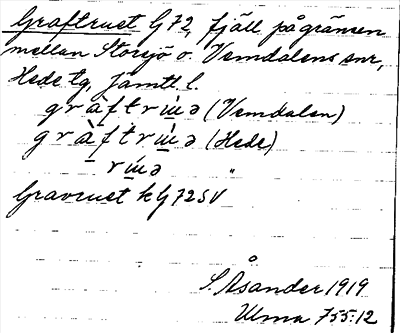 Graftruet G 72, fjäll på gränsen
mellan Storsjö o. Vemdalens snr,
Hede tg, Jämtl. l.
gràftrɯ́ə (Vemdalen)
gràftrɯ̀ə (Hede)
rɯ́ə "
Gravruet k G 72 SV
S. Åsander 1919
Ulma 755:12